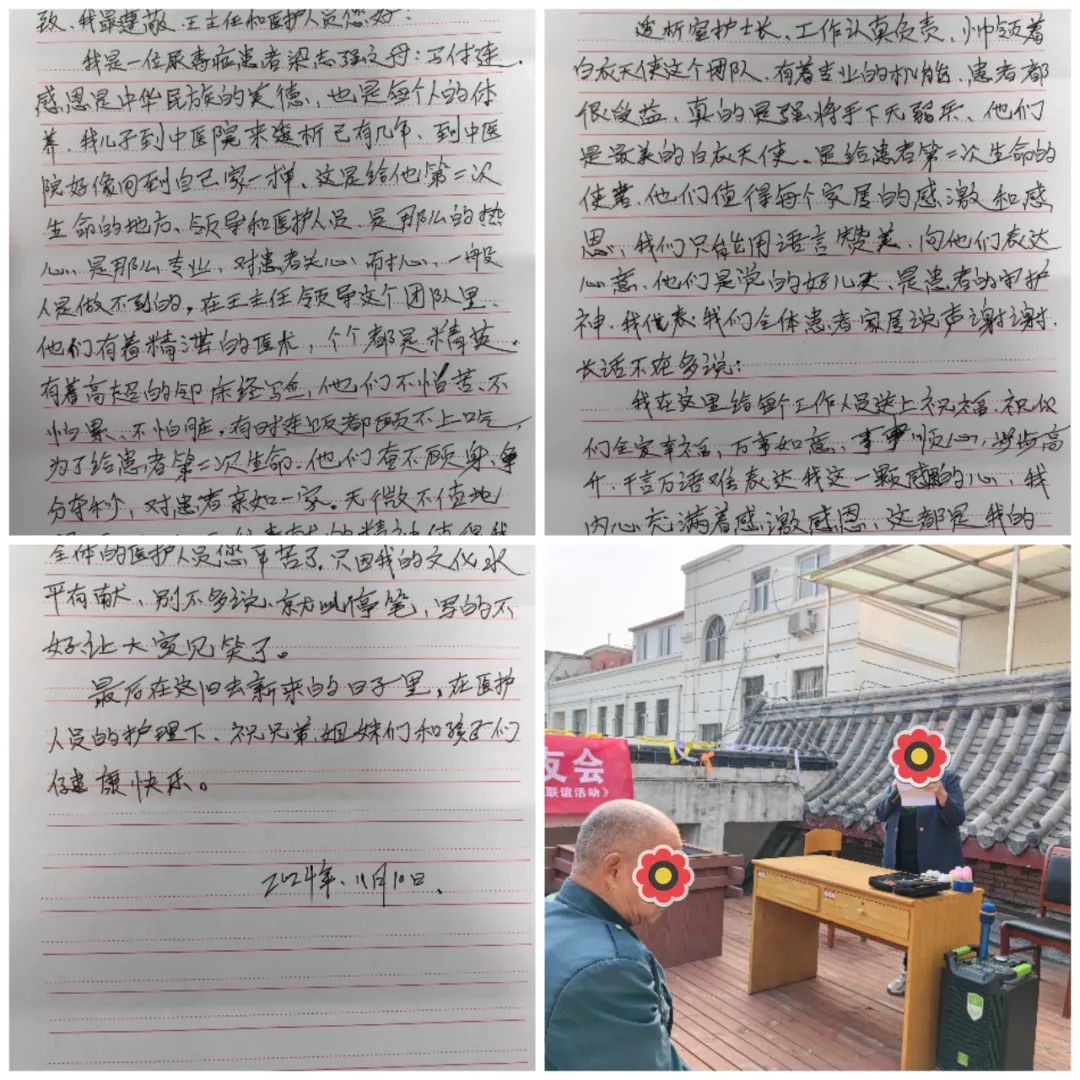 致、我最尊敬、王主任和医护人员您好:
我是一位尿毒症患者梁志强父母:马付连,
感恩是中华民族的美德、也是每个人的体
养、我儿子到中医院来透析己有几年、到中医
院好像回到自己家一样、这是给他第二次
生命的地方、领导和医护人员、是那么的热
心、是那么专业、对患者关心、而扎心、一般
人是做不到的。在王主任领导这个团队里、
他们有着精湛的医术,个个都是精英。
有着高超的临床经验,他们不怕苦、不
怕累、不怕脏、有时连饭都顾不上吃,
为了给患者第二次生命、他们奋不顾身、争
分夺秒,对患者亲如一家。无微不值地
透析室护士长、工作认真负责、帅领着
白衣天使这个团队、有着专业的机能、患者都
很受益、真的是强将手下无弱乐、他们
是最美的白衣天使、是给患者第二次生命的
使者、他们值得每个家属的感激和感
恩、我们只能用语言赞美、向他们表达
心意、他们是党的好儿女、是患者的守护
神、我代表我们全体患者家居说声谢谢、
长话不在多说:
我在这里给每个工作人员送上祝福、祝他
们全家幸福,万事如意、事事顺心,步步高
升、千言万语难表达我这一颗感的心,我
内心充满着感激感恩、这都是我的
全体的医护人员您辛苦了。只因我的文化水
平有献、别不多说、就此停笔,写的不
好让大家见笑了。
最后在这旧去新来的日子里,在医护
人员的护理下、祝兄弟姐妹们和孩子们
健康快乐。
2024年、11月10日、
友会
联谊活动》